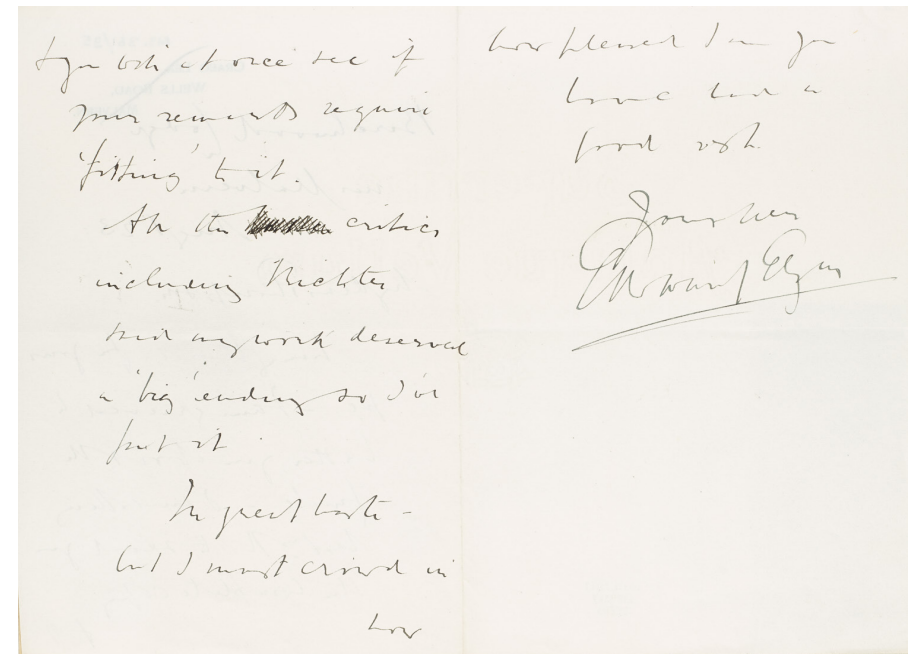 & you will at once see if
your remarks require
'fitting' to it.
All the critics
including Richter
said my work deserved
a 'big' ending so I've
put it.
In great haste -
but I must crowd in
how
how pleased I am you
have had a
good rest.
Yours ever
Edward Elgar